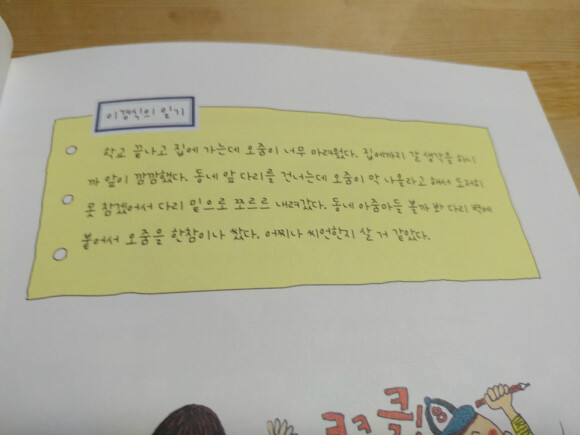 이경식의 일기
학교 끝나고 집에 가는데 오줌이 너무 마려웠다. 집에까지 갈 생각을 하니
까 앞이 깜깜했다. 동네 앞 다리를 건너는데 오줌이 막 나올라고 해서 도저히
못 참겠어서 다리 밑으로 쪼르르 내려갔다. 동네 아줌마들 볼까 봐 다리 벽에
붙어서 오줌을 한참이나 쌌다. 어찌나 씨언한지 살 거 같았다.
쿨
8